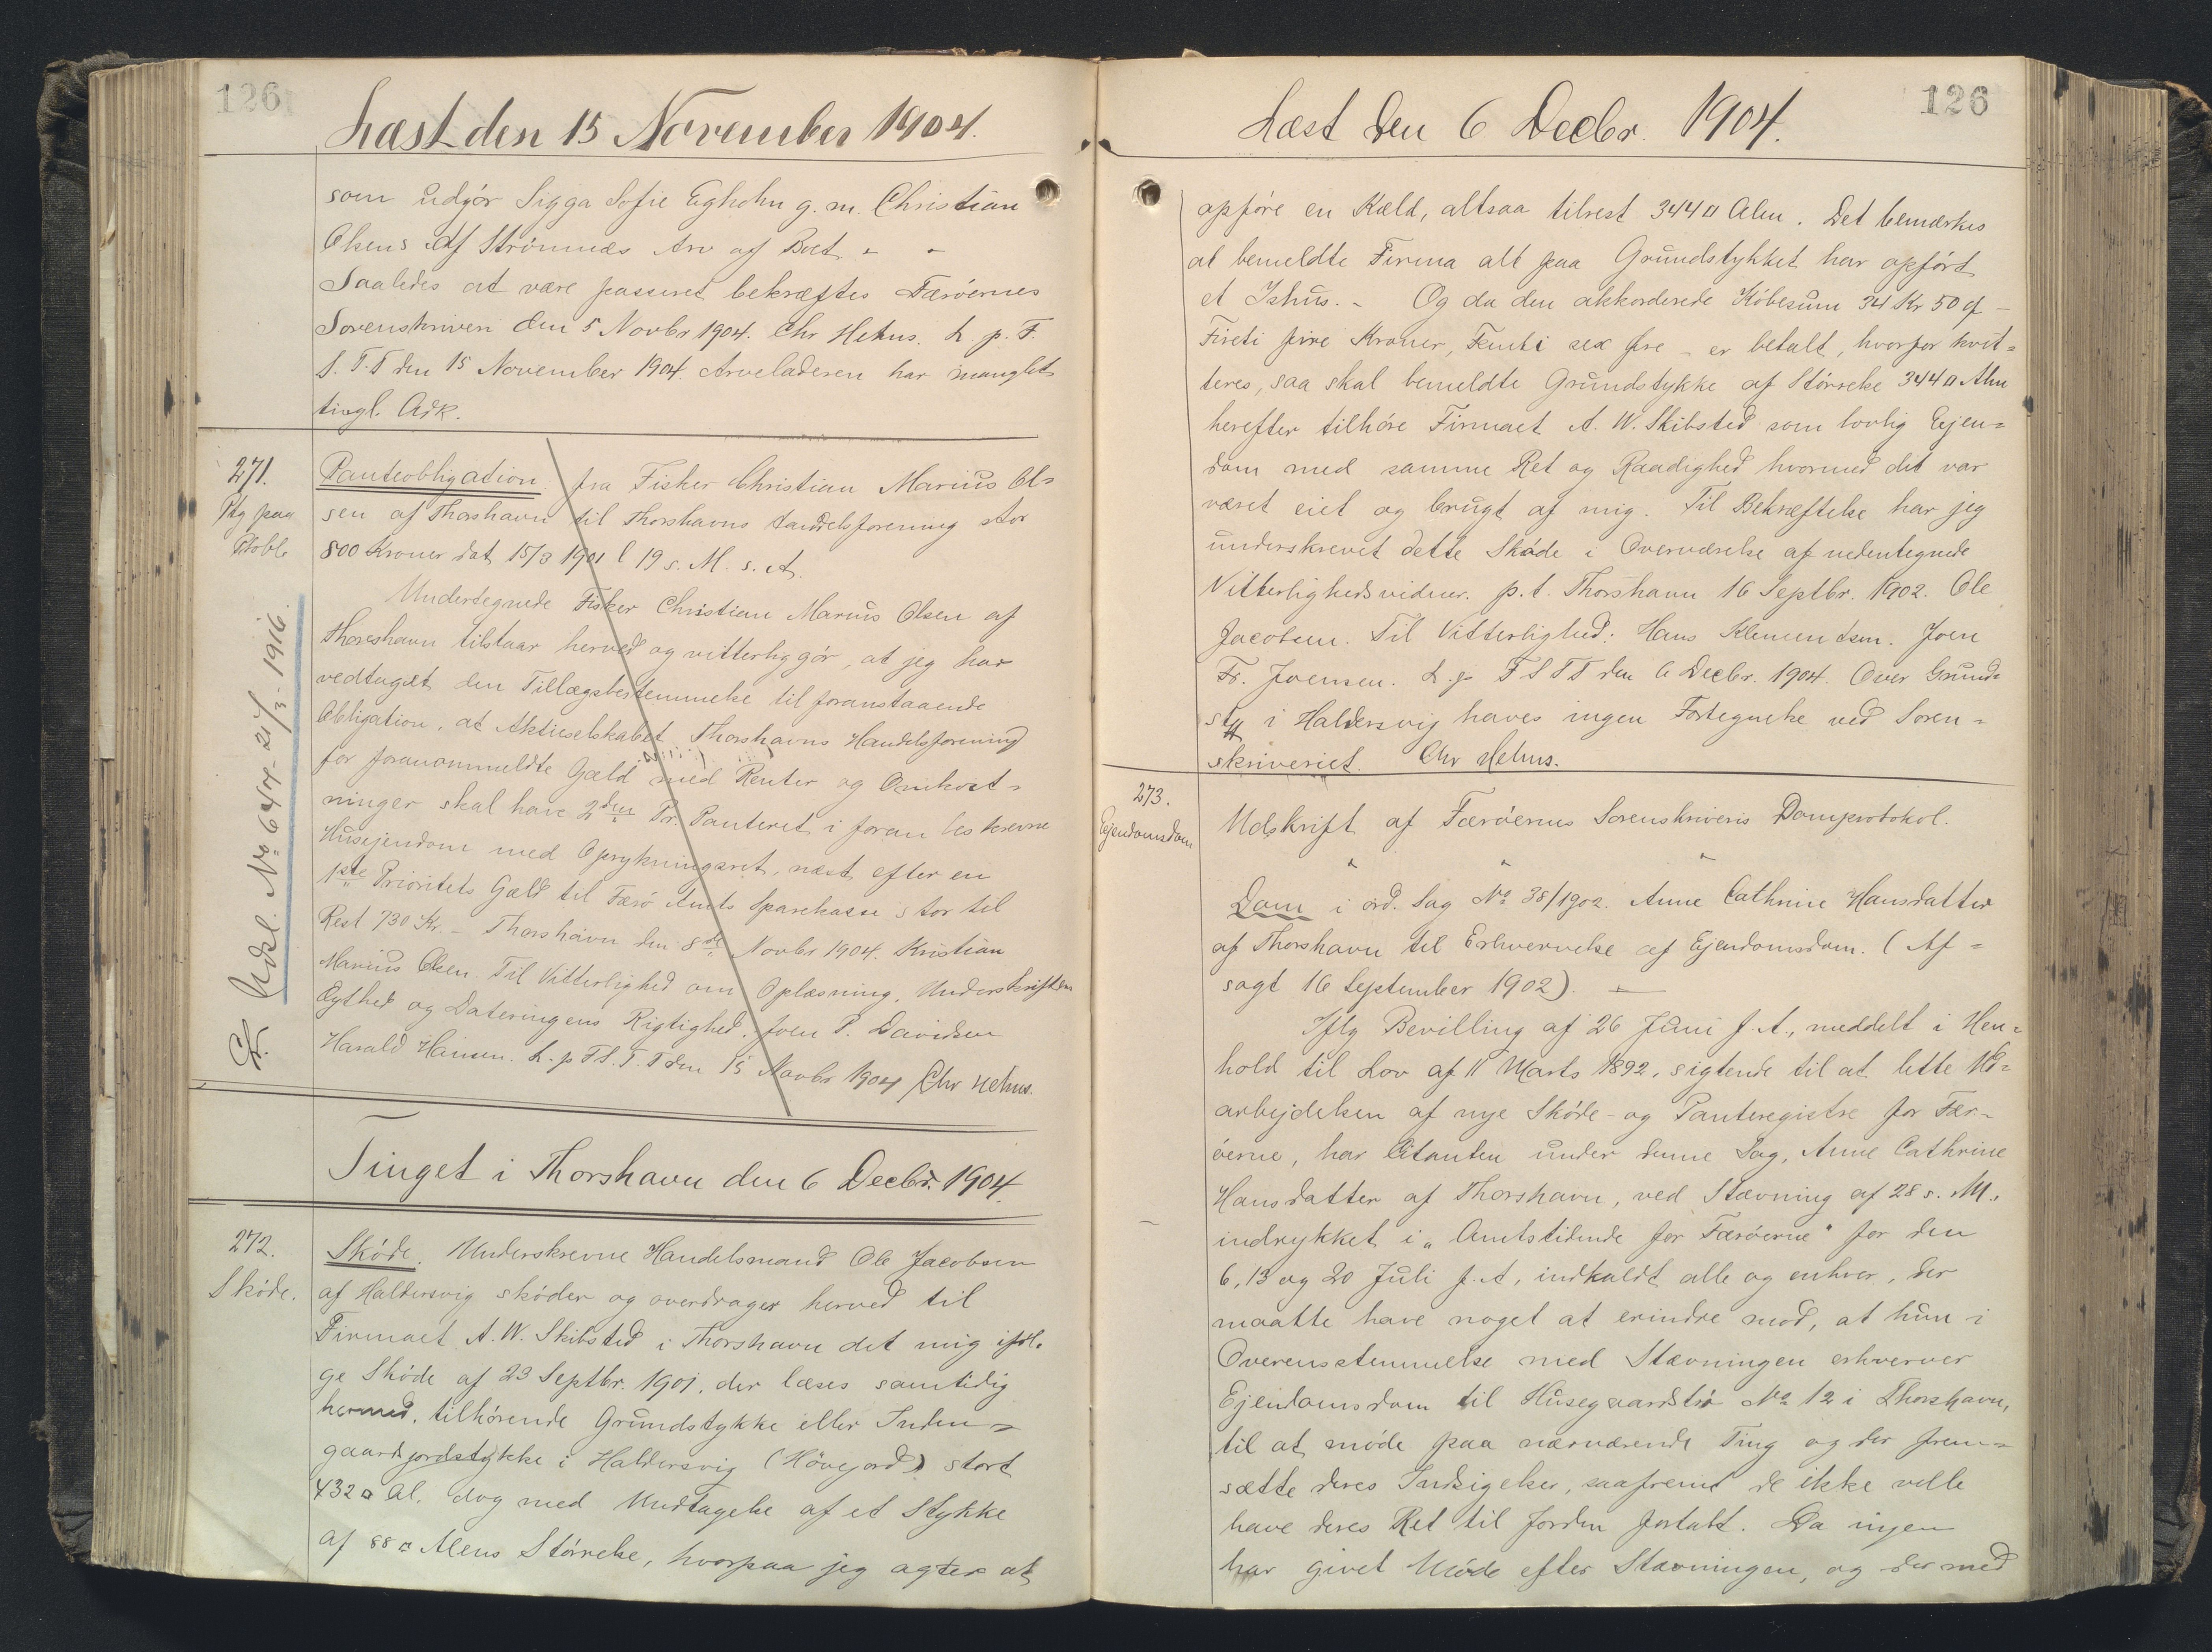 126
Læst den 15 November 1904.
som udgør Sigga Sofie Egholm g. m. Christian
Olsens af Strømnæs Arv af Boet. - -
Saaledes at være passeret bekræftes Færøernes
Sorenskriveri den 5 Novbr 1904. Chr Hehus. L. p. F.
S. T. T den 15 November 1904. Arveladeren har manglet
tingl. Adk.
271.
Ptg paa
Pantobligation fra Fisker Christian Marius Ol=
sen af Thorshavn til Thorshavns Handelsforening stor
800 Kroner dat 15/3 1901 l 19 s. M. s. A.
Undertegnede Fisker Christian Marius Olsen af
Thorshavn tilstaar herved og vitterliggør, at jeg har
vedtaget den Tillægsbestemmelse til foranstaaende
Obligation, at Aktieselskabet Thorshavns Handelsforening
for foranommeldte Gæld med Renter og Omkost=
ninger skal have 2den Pr. Panteret i foran beskrevne
Husejendom med Oprykningsret, næst efter en
1ste Prioritets Gæld til Færø Amts Sparekasse stor til
Rest 730 Kr. - Thorshavn den 8de Novbr 1904. Kristian
Marius Olsen. Til Vitterlighed om Oplæsning, Underskriftens
Ægthed og Dateringens Rigtighed. Joen P. Davidsen
Harald Hansen. L. p F S. T. T den 15 Novbr 1904 Chr Hehus.
Udsl. No 644 - 21/3 - 1916.
Tinget i Thorshavn den 6 Decbr. 1904.
272.
Skøde.
Skøde. Underskrevne Handelsmand Ole Jacobsen
af Haldersvig skøder og overdrager herved til
Firmaet A. W. Skibsted i Thorshavn det mig iføl=
ge Skøde af 23 Septbr. 1901, der læses samtidig
hermed, tilhørende Grundstykke eller Inden=
gaardsjordstykke i Haldersvig (Høvejord) stort
432 □ Al. dog med Undtagelse af et Stykke
af 88 □ Alens Størrelse, hvorpaa jeg agter at
126
Læst den 6 Decbr. 1904.
opføre en Kæld, altsaa tilrest 344 □ Alen. Det bemærkes
at bemeldte Firma alt paa Grundstykket har opført
et Ishus. - Og da den akkorderede Købesum 34 Kr 50 Ø -
Fireti fire Kroner, Femti sex Øre - er betalt, hvorfor kvit=
teres, saa skal bemeldte Grundstykke af Størrelse 344 □ Alen
herefter tilhøre Firmaet A. W. Skibsted som lovlig Ejen=
dom med samme Ret og Raadighed hvormed det var
været eiet og brugt af mig. Til Bekræftelse har jeg
underskrevet dette Skøde i Overværelse af nedentegnede
Vitterlighedsvidner. p. t. Thorshavn 16 Septbr. 1902. Ole
Jacobsen. Til Vitterlighed: Hans Klementsen. Joen
Fr. Joensen. L. p F S T T den 6 Decbr. 1904. Over Grund=
stk i Haldersvig haves ingen Fortegnelse ved Soren=
skriveriet. Chr Hehus.
273.
Ejendomsdom
Udskrift af Færøernes Sorenskriveris Domprotokol.
" " "
Dom i ord. Sag No 38/1902. Anne Cathrine Hansdatter
af Thorshavn til Erhvervelse af Ejendomsdom. (Af=
sagt 16 September 1902). —
Iflg Bevilling af 26 Juni f. A., meddelt i Hen=
hold til Lov af 11 Marts 1892, sigtende til at lette Ud=
arbejdelsen af nye Skøde- og Panteregistre for Fær=
øerne, har Citanten under denne Sag, Anne Cathrine
Hansdatter af Thorshavn, ved Stævning af 28 s. M.,
indrykket i "Amtstidende for Færøerne" for den
6, 13 og 20 Juli f. A, indkaldt alle og enhver, der
maatte have noget at erindre mod, at hun i
Overensstemmelse med Stævningen erhverver
Ejendomsdom til Husegaardstrø No 12 i Thorshavn,
til at møde paa nærværende Ting og der frem=
sætte deres Indsigelser, saafremt de ikke ville
have deres Ret til Jorden fortabt. Da ingen
har givet Møde efter Stævningen, og der med